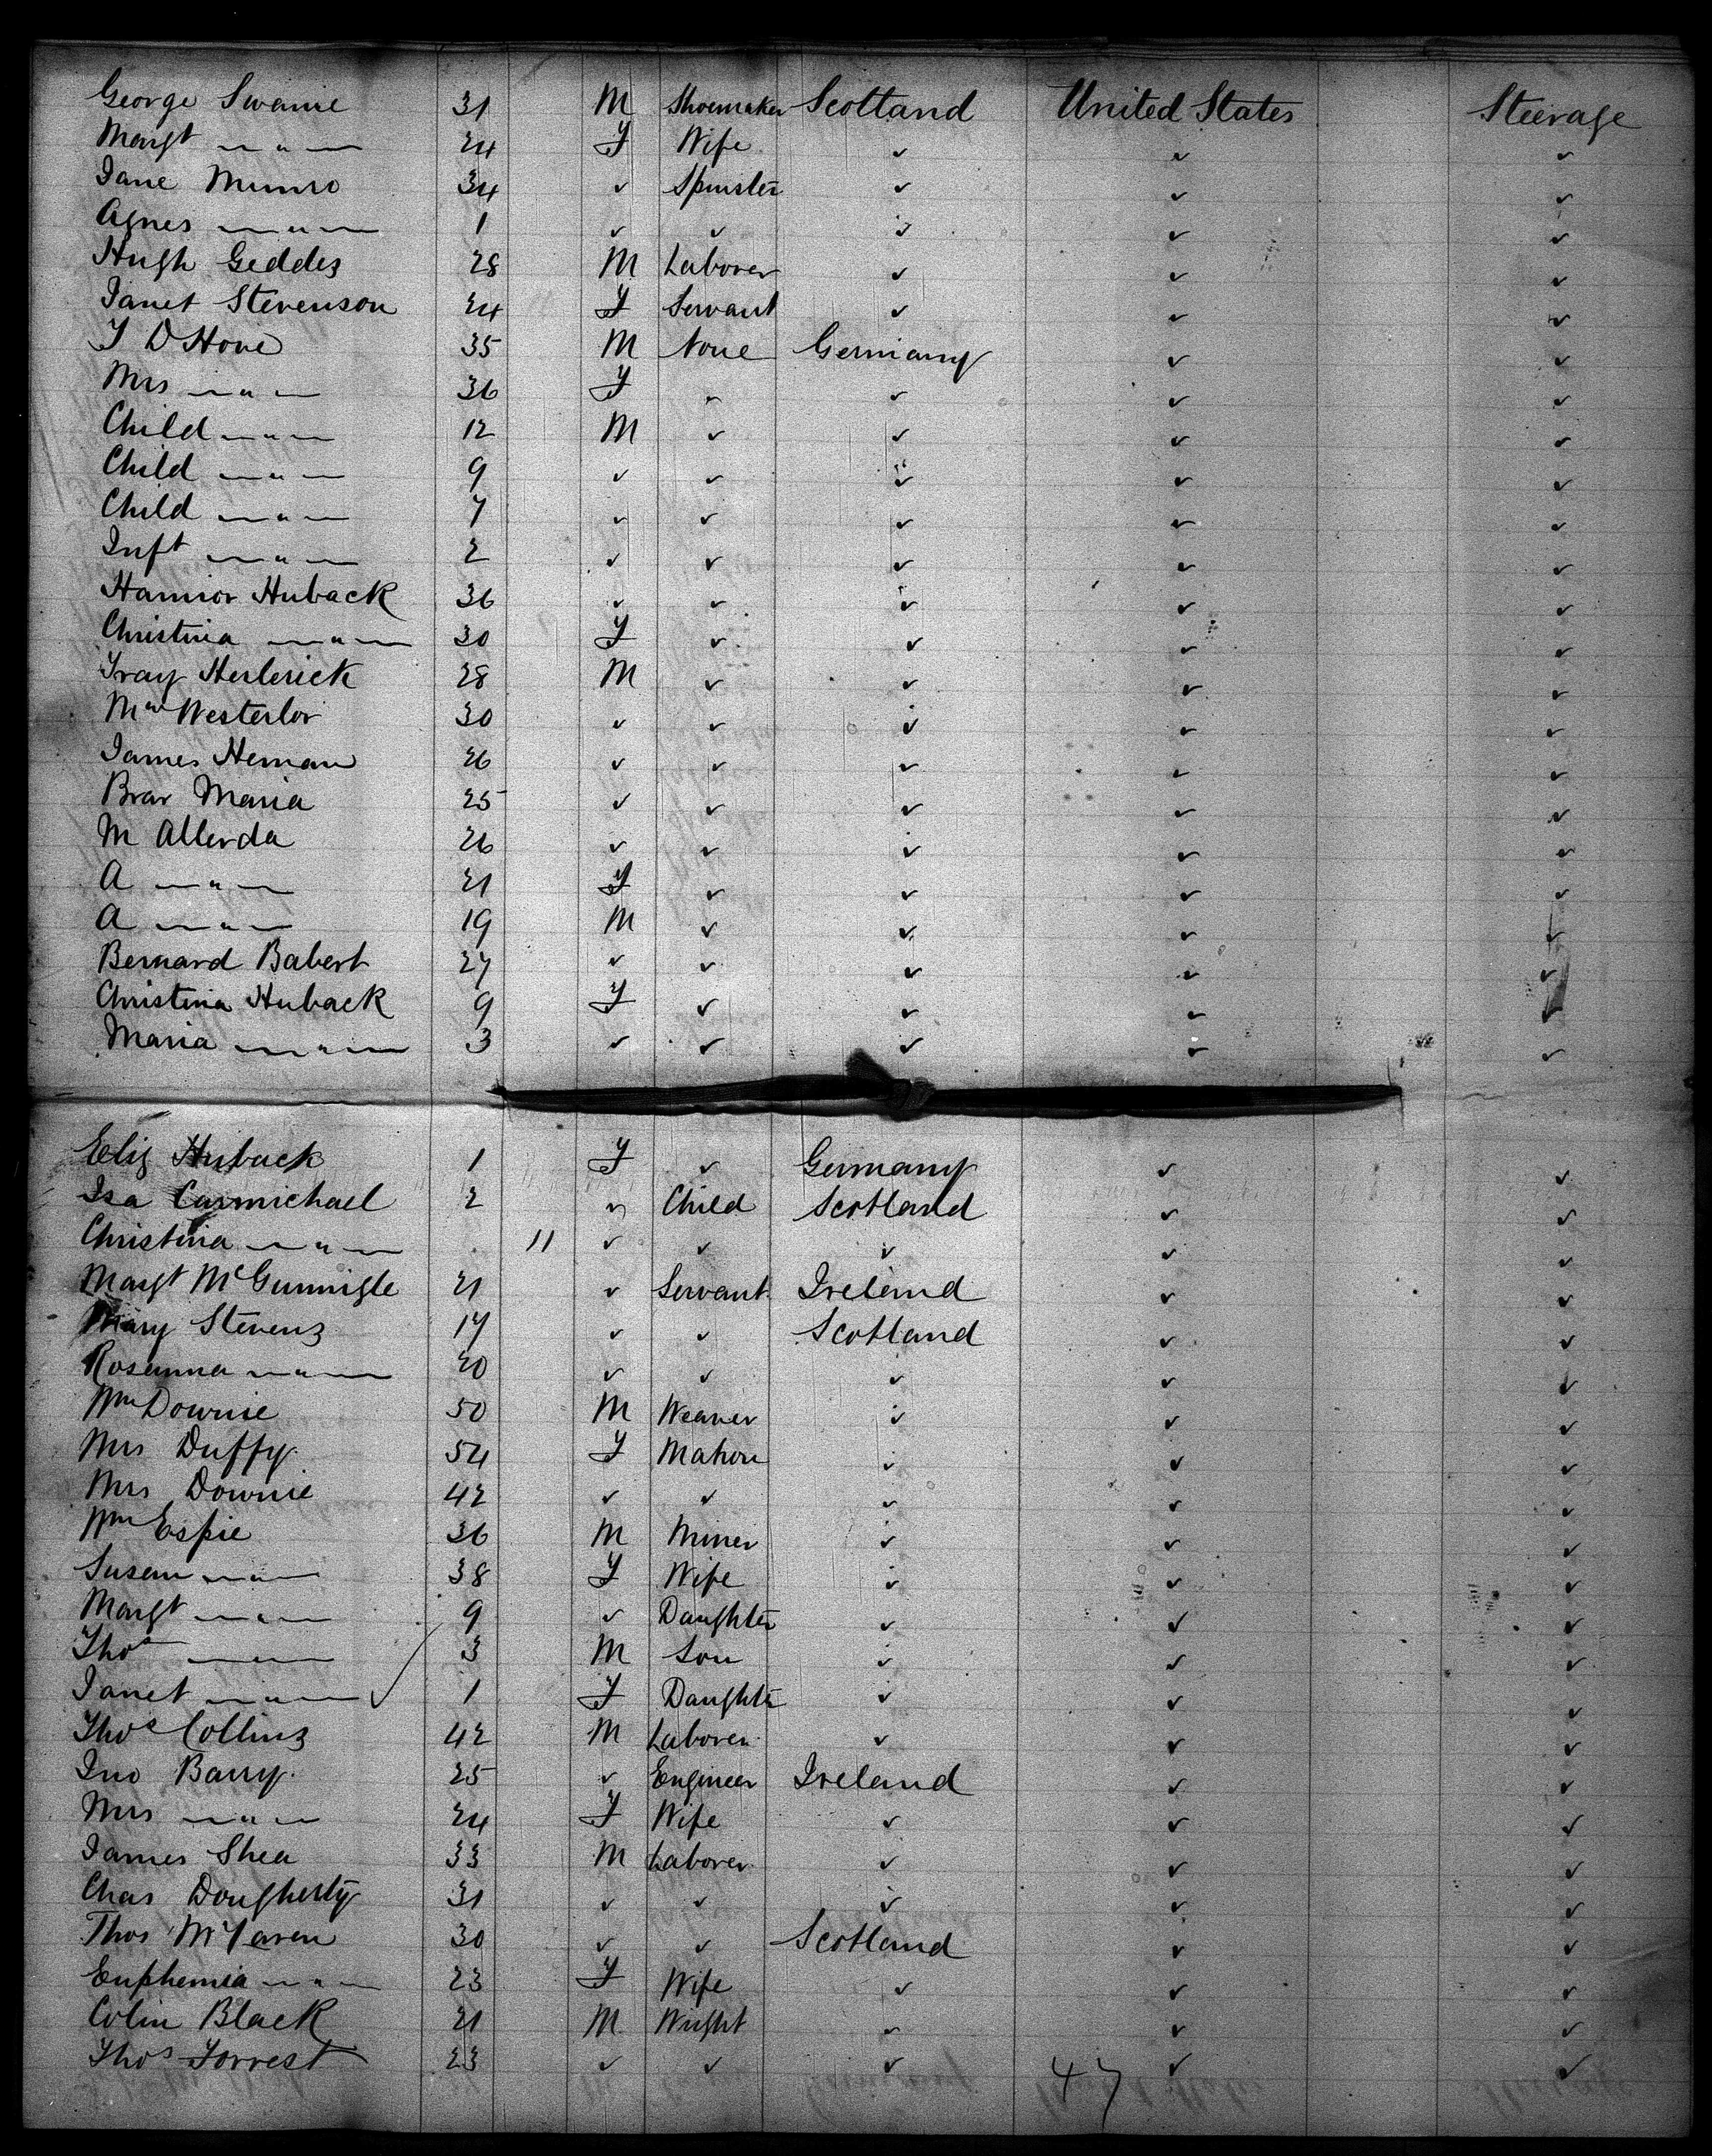 George Swanie 31 M Shoemaker Scotland United States Steerage
Margt — " — 24 F Wife ✓ ✓ ✓
Jane Munro 34 ✓ Spinster ✓ ✓ ✓
Agnes — " — 1 ✓ ✓ ✓ ✓ ✓
Hugh Geddes 28 M Laborer ✓ ✓ ✓
Janet Stevenson 24 F Servant ✓ ✓ ✓
35 M None Germany ✓ ✓
Mrs — " — 36 F ✓ ✓ ✓ ✓
Child — " — 12 M ✓ ✓ ✓ ✓
Child — " — 9 ✓ ✓ ✓ ✓ ✓
Child — " — 7 ✓ ✓ ✓ ✓ ✓
Inft — " — 2 ✓ ✓ ✓ ✓ ✓
Huback 36 ✓ ✓ ✓ ✓ ✓
Christina — " — 30 F ✓ ✓ ✓ ✓
28 M ✓ ✓ ✓ ✓
30 ✓ ✓ ✓ ✓ ✓
James Heman 26 ✓ ✓ ✓ ✓ ✓
Brar Maria 25 ✓ ✓ ✓ ✓ ✓
M Allerda 26 ✓ ✓ ✓ ✓ ✓
A — " — 21 F ✓ ✓ ✓ ✓
A — " — 19 M ✓ ✓ ✓ ✓
Bernard Babert 27 ✓ ✓ ✓ ✓ ✓
Christina Huback 9 F ✓ ✓ ✓ ✓
Maria — " — 3 ✓ ✓ ✓ ✓ ✓
Eliz Huback 1 F ✓ Germany ✓ ✓
Isa Carmichael 2 ✓ Child Scotland ✓ ✓
Christina — " — 11 ✓ ✓ ✓ ✓ ✓
Margt McGunnigle 21 ✓ Servant Ireland ✓ ✓
Mary Stevens 17 ✓ ✓ Scotland ✓ ✓
Rosanna — " — 20 ✓ ✓ ✓ ✓ ✓
Wm Downie 50 M Weaver ✓ ✓ ✓
Mrs Duffy 54 F Matron ✓ ✓ ✓
Mrs Downie 42 ✓ ✓ ✓ ✓ ✓
Wm Espie 36 M Miner ✓ ✓ ✓
Susan — " — 38 F Wife ✓ ✓ ✓
Margt — " — 9 ✓ Daughter ✓ ✓ ✓
Thos — " — 3 M Son ✓ ✓ ✓
Janet — " — ✓ 1 F Daughter ✓ ✓ ✓
Thos Collins 42 M Laborer ✓ ✓ ✓
Jno Barry 25 ✓ Engineer Ireland ✓ ✓
Mrs — " — 24 F Wife ✓ ✓ ✓
James Shea 33 M Laborer ✓ ✓ ✓
Chas Dougherty 31 ✓ ✓ ✓ ✓ ✓
Thos 30 ✓ ✓ Scotland ✓ ✓
Euphemia — " — 23 F Wife ✓ ✓ ✓
Colin Black 21 M Wright ✓ ✓ ✓
Thos Forrest 23 ✓ ✓ ✓ ✓ ✓
47